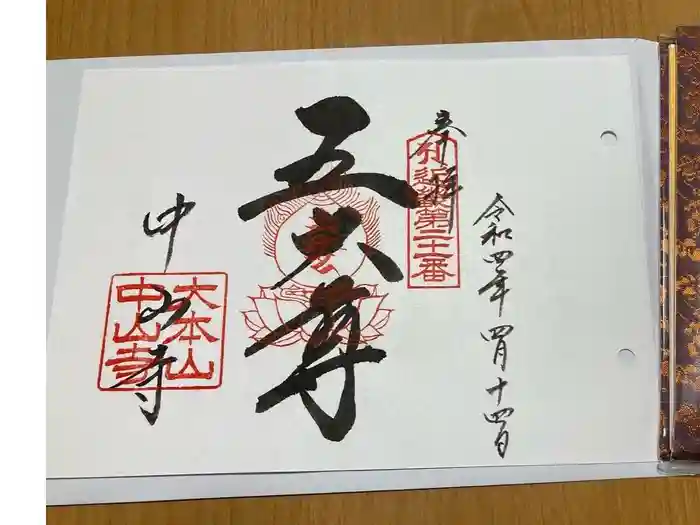 奉拝
近畿第二十一番
令和四年四月十四日
五大尊
中山寺
大本山
中山寺